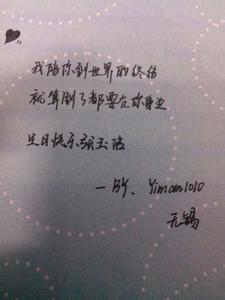 我陪你到世界的终结
就算倒了都要在你身边
生日快乐张玉洁
一BY、Yiman1010
无锡